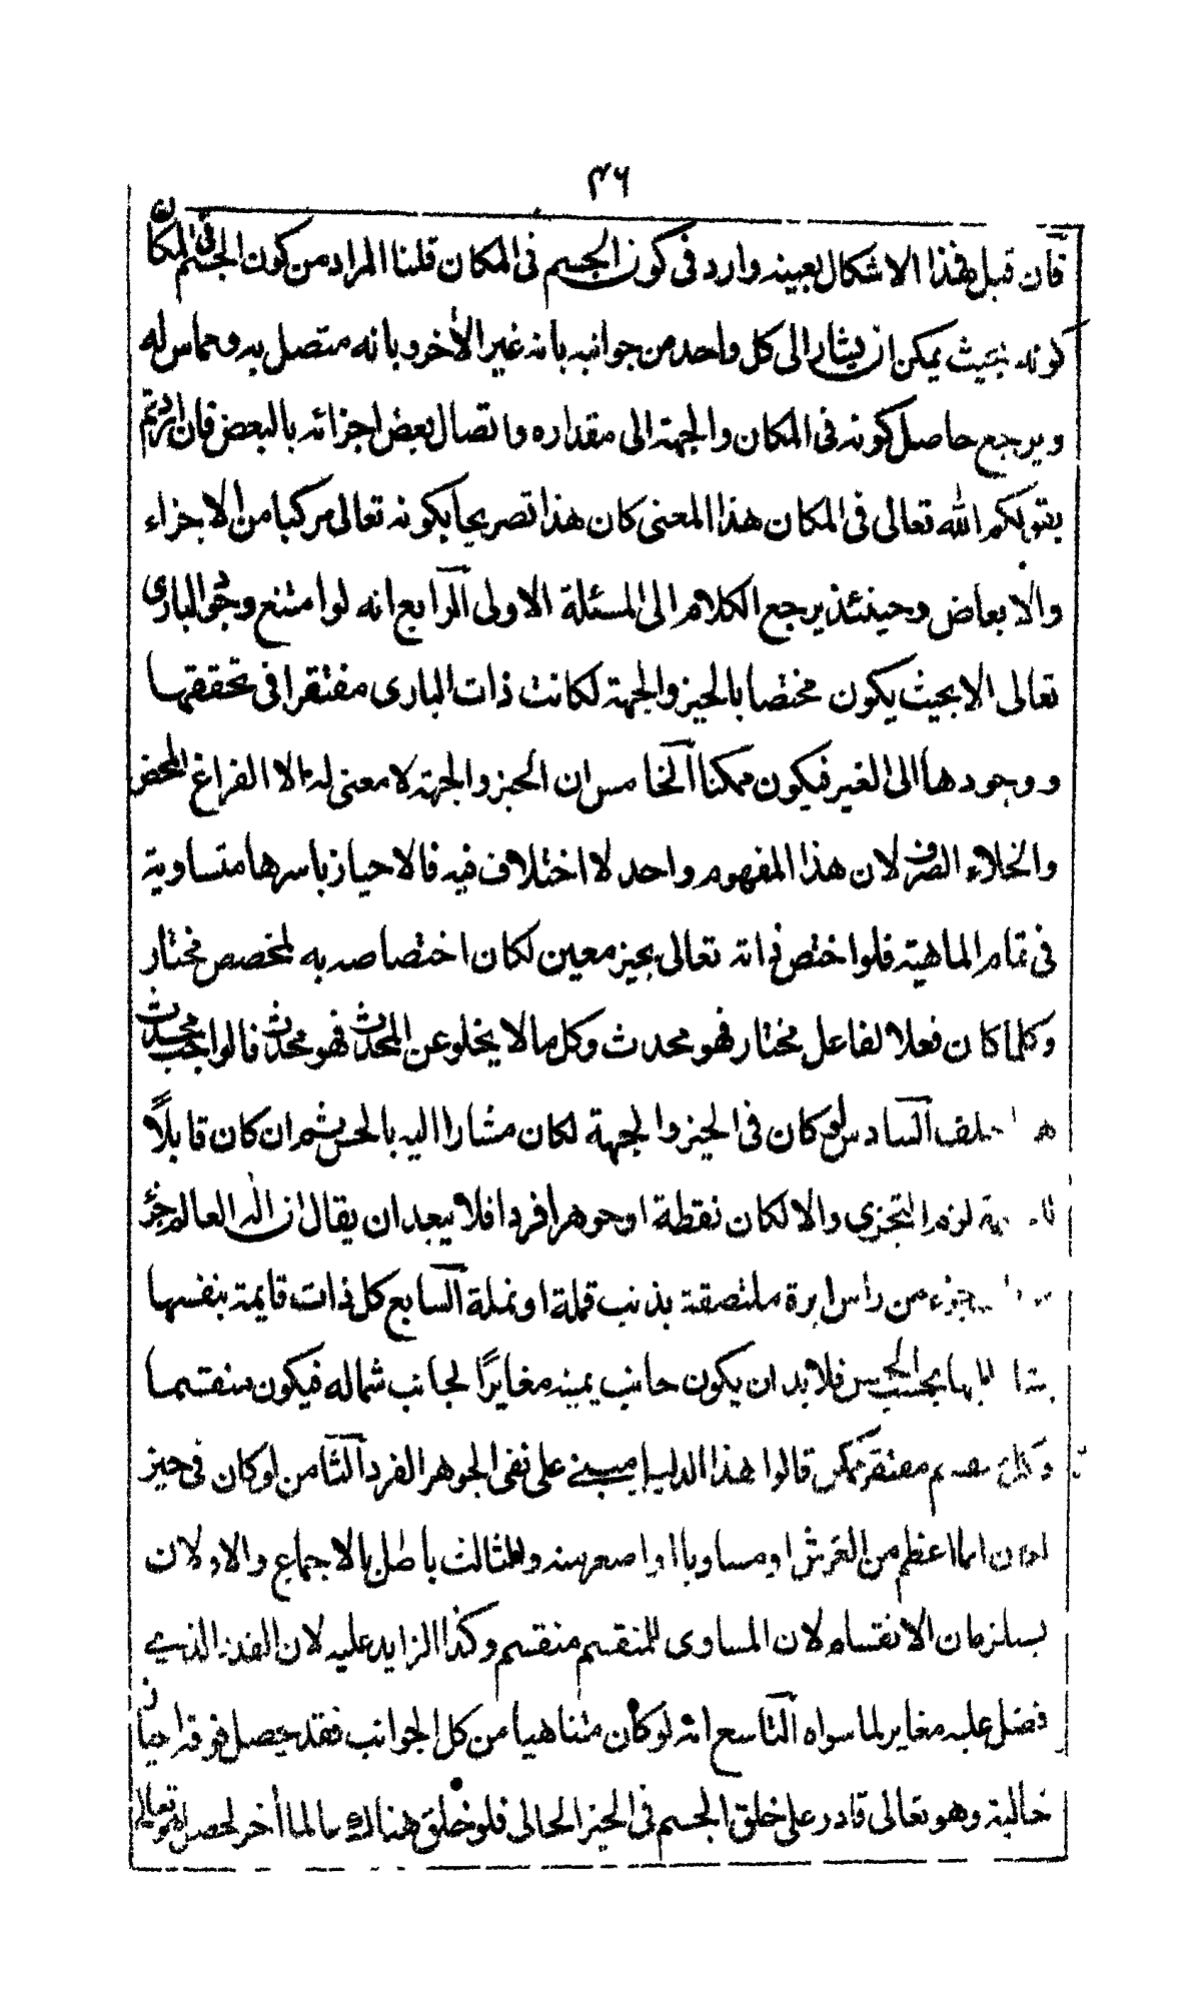 ٤٦
فان قيل فهذا الاشكال بعينه وارد فى كون الجسم فى المكان قلنا المراد من كون الجسم فى المكان
كونه بحيث يمكن ان يشار الى كل واحد من جوانبه بانه غير الأخر وبانه متصل به ومماس له
ويرجع حاصل كونه فى المكان والجهة الى مقداره واتصال بعض اجزائه بالبعض فان اردتم
بقولكم الله تعالى فى المكان هذا المعنى كان هذا تصريحا بكونه تعالى مركبا من الاجزاء
والابعاض وحينئذ يرجع الكلام الى المسئلة الاولى الرابع انه لو امتنع وجود البارى
تعالى الا بحيث يكون مختصا بالحيز والجهة لكانت ذات البارى مفتقرا فى تحققها
ووجودها الى الغير فيكون ممكنا الخامس ان الحيز والجهة لا معنى له الا الفراغ المحض
والخلاء الصرف لان هذا المفهوم واحد لا اختلاف فيه فالاحياز باسرها متساوية
فى تمام الماهية فلو اختص ذاته تعالى بحيز معين لكان اختصاصه به لمخصص مختار
وكلما كان فعلا لفاعل مختار فهو محدث وكل ما لا يخلو عن المحدث فهو محدث قالوا
خلف السادس لو كان فى الحيز والجهة لكان مشارا اليه بالحس ثم ان كان قابلًا
لزم التجزى والا لكان نقطة او جوهرا فردا فلا يبعد ان يقال ان اله العالم جزء
جزء من راس ابرة ملتصقة بذنب قملة او نملة السابع كل ذات قايمة بنفسها
بحسب الحس فلا بد ان يكون جانب يمينه مغايرًا لجانب شماله فيكون منقسما
وكل مفتقر ممكن قالوا هذا الدليل مبنى على نفى الجوهر الفرد الثامن لو كان فى حيز
لكان اما اعظم من العرش او مساويا او اصغر منه والثالث باطل بالاجماع والاولان
يستلزمان الانقسام لان المساوى للمنقسم منقسم وكذا الزايد عليه لان القدر الذى
فضل عليه مغاير لما سواه التاسع انه لو كان متناهيا من كل الجوانب فقد حصل فوقه احيان
خالية وهو تعالى قادر على خلق الجسم فى الحيز الخالى فلو خلق هناك عالما أخر لحصل هو تعالى